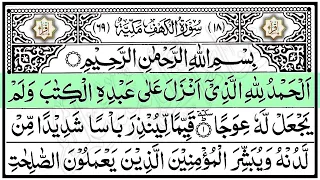 (١٨) سُوْرَةُ الْكَهْفِ مَكِّيَّةٌ (٦٩)
بِسْمِ اللهِ الرَّحْمٰنِ الرَّحِيْمِ
اَلْحَمْدُ لِلّٰهِ الَّذِيْۤ اَنْزَلَ عَلٰى عَبْدِهِ الْكِتٰبَ وَلَمْ
يَجْعَلْ لَّهٗ عِوَجًا ۜ ۝١ قَيِّمًا لِّيُنْذِرَ بَاْسًا شَدِيْدًا مِّنْ
لَّدُنْهُ وَيُبَشِّرَ الْمُؤْمِنِيْنَ الَّذِيْنَ يَعْمَلُوْنَ الصّٰلِحٰتِ